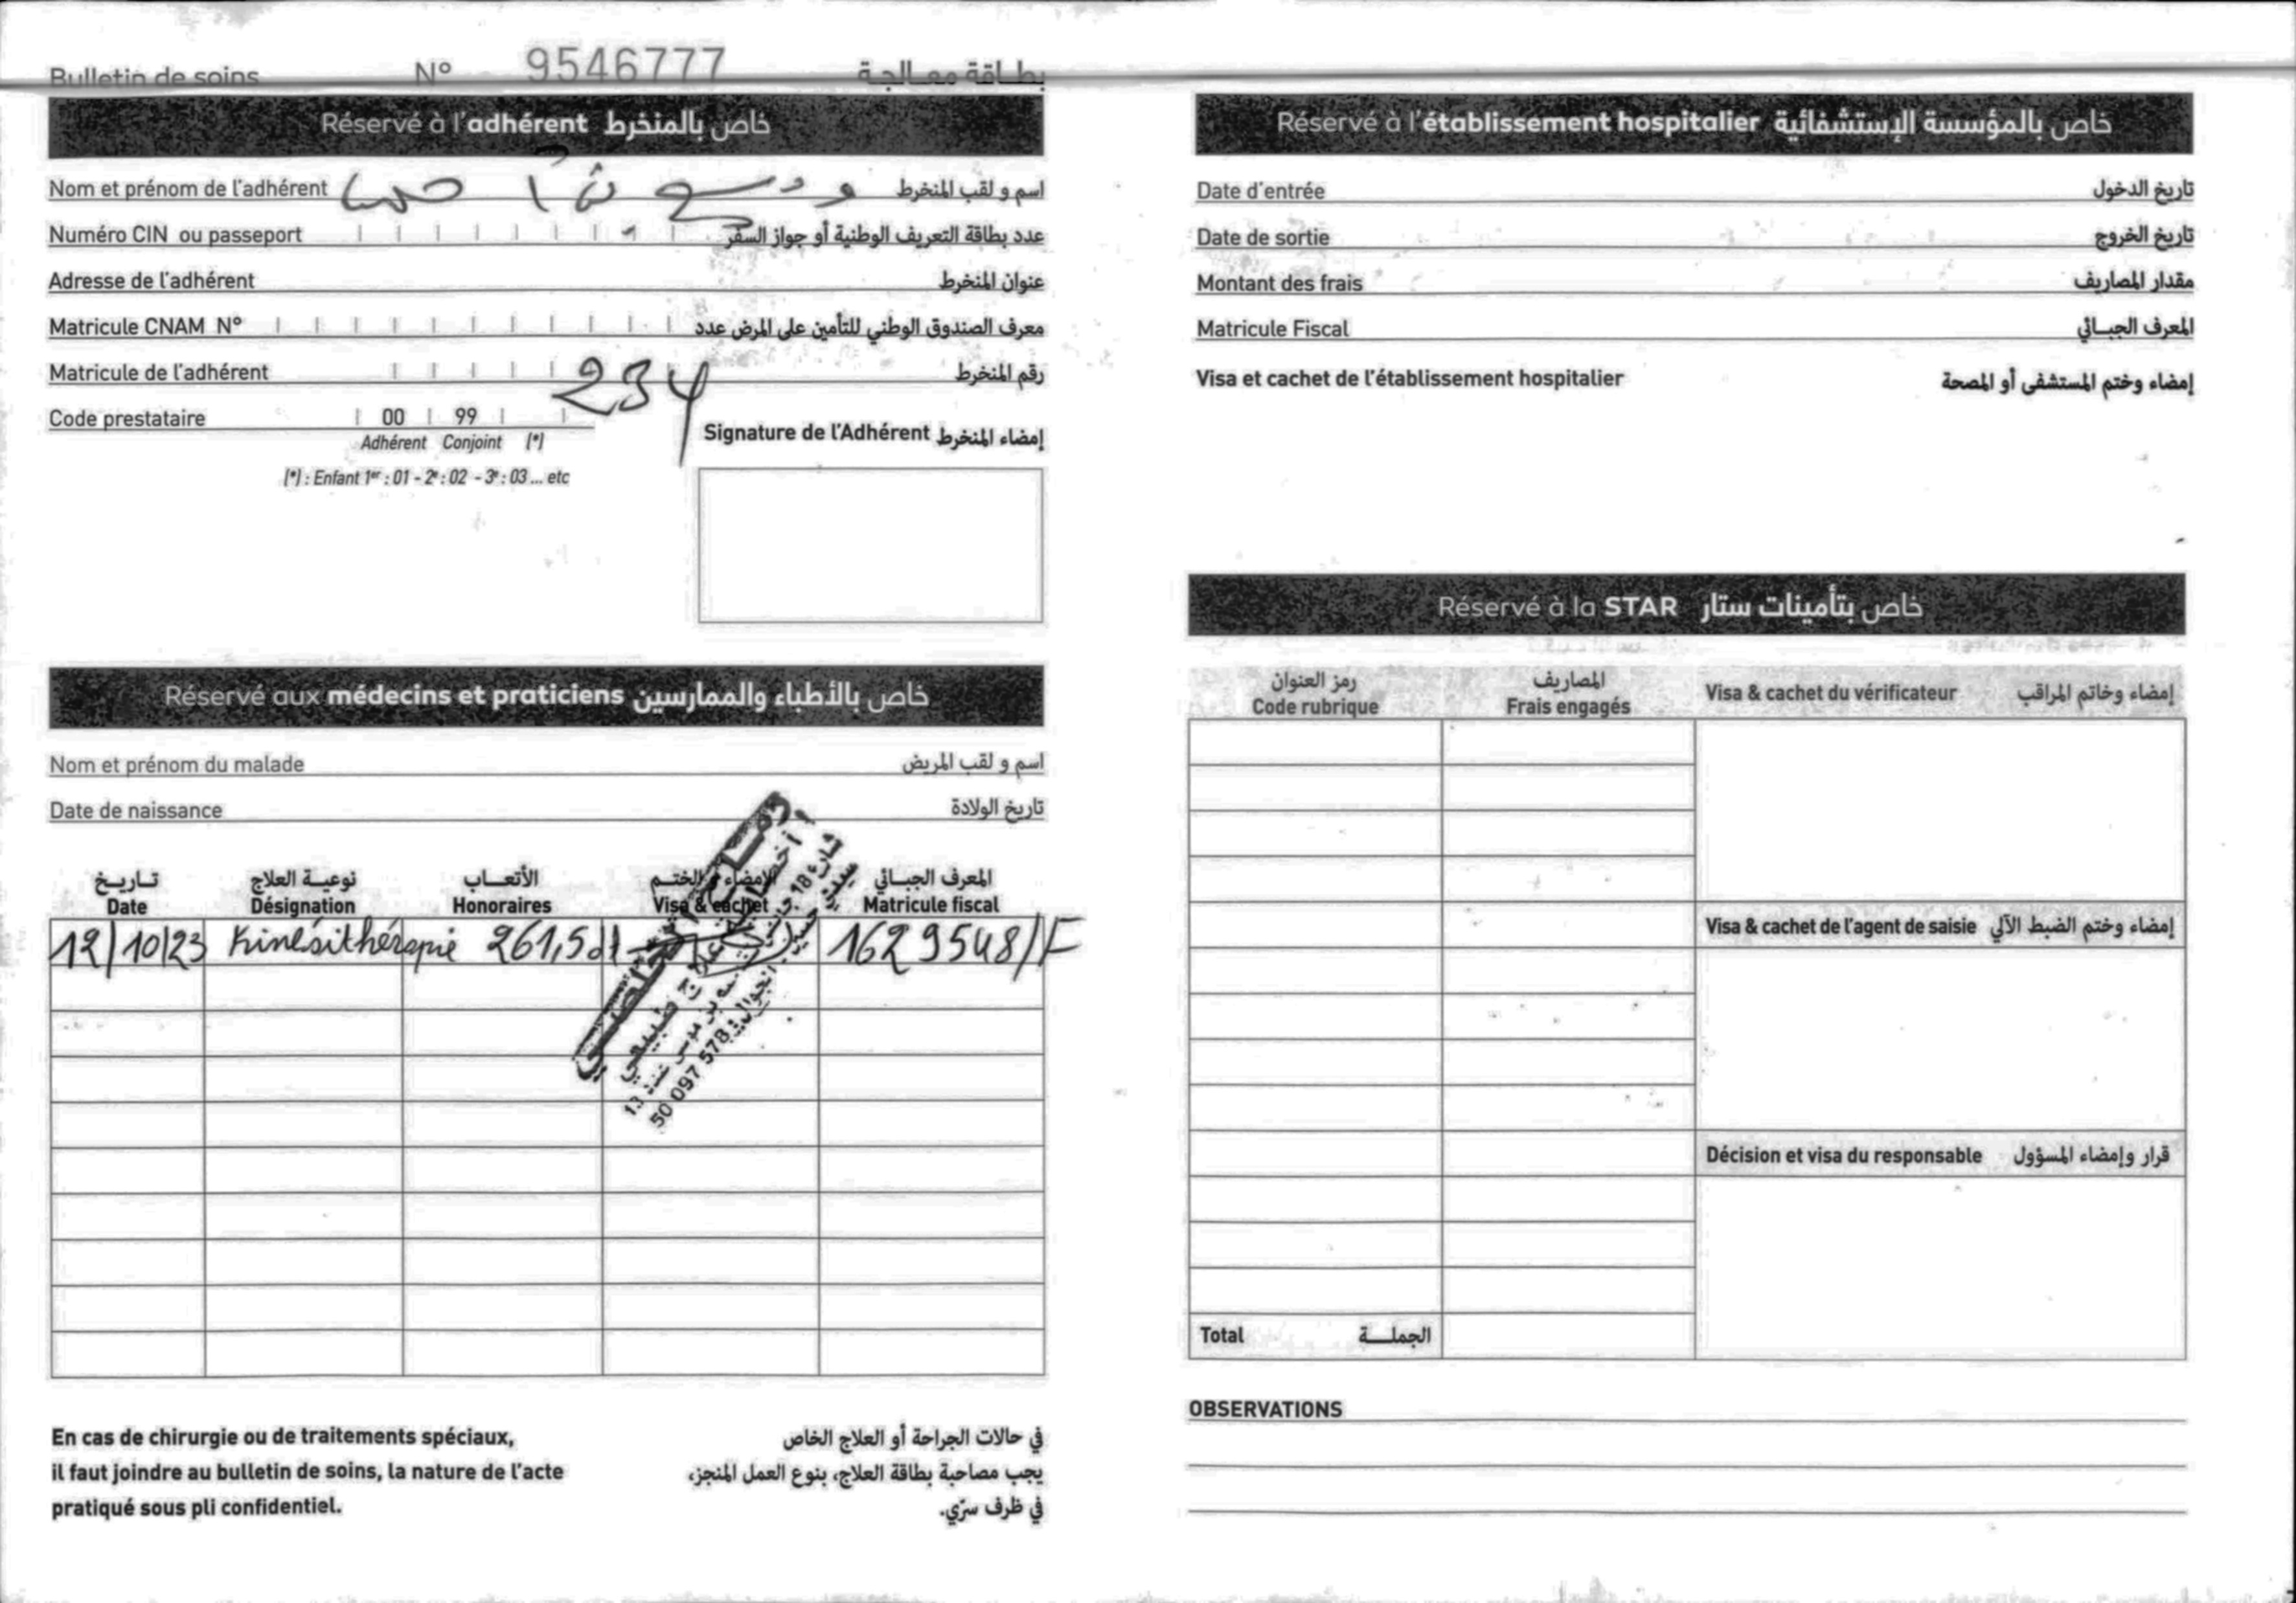 Bulletin de soins N° 9546777 بطاقة معالجة
Réservé à l'adhérent خاص بالمنخرط
Nom et prénom de l'adhérent اسم و لقب المنخرط
Numéro CIN ou passeport عدد بطاقة التعريف الوطنية أو جواز السفر
Adresse de l'adhérent عنوان المنخرط
Matricule CNAM N° معرف الصندوق الوطني للتأمين على المرض عدد
Matricule de l'adhérent 234 رقم المنخرط
Code prestataire 00 99
Adhérent Conjoint (*)
(*) : Enfant 1er : 01 - 2e : 02 - 3e : 03 ... etc
Signature de l'Adhérent إمضاء المنخرط
Réservé aux médecins et praticiens خاص بالأطباء والممارسين
Nom et prénom du malade اسم و لقب المريض
Date de naissance تاريخ الولادة
تاريخ نوعية العلاج الأتعاب الإمضاء و الختم المعرف الجبائي
Date Désignation Honoraires Visa & cachet Matricule fiscal
12/10/23 Kinésithérapie 261,5dt 1629548/F
50 097 578
En cas de chirurgie ou de traitements spéciaux,
il faut joindre au bulletin de soins, la nature de l'acte
pratiqué sous pli confidentiel.
في حالات الجراحة أو العلاج الخاص
يجب مصاحبة بطاقة العلاج، بنوع العمل المنجز،
في ظرف سرّي.
Réservé à l'établissement hospitalier خاص بالمؤسسة الإستشفائية
Date d'entrée تاريخ الدخول
Date de sortie تاريخ الخروج
Montant des frais مقدار المصاريف
Matricule Fiscal المعرف الجبائي
Visa et cachet de l'établissement hospitalier إمضاء وختم المستشفى أو المصحة
Réservé à la STAR خاص بتأمينات ستار
رمز العنوان المصاريف
Code rubrique Frais engagés
Visa & cachet du vérificateur إمضاء وخاتم المراقب
Visa & cachet de l'agent de saisie إمضاء وختم الضبط الآلي
Décision et visa du responsable قرار وإمضاء المسؤول
Total الجملة
OBSERVATIONS